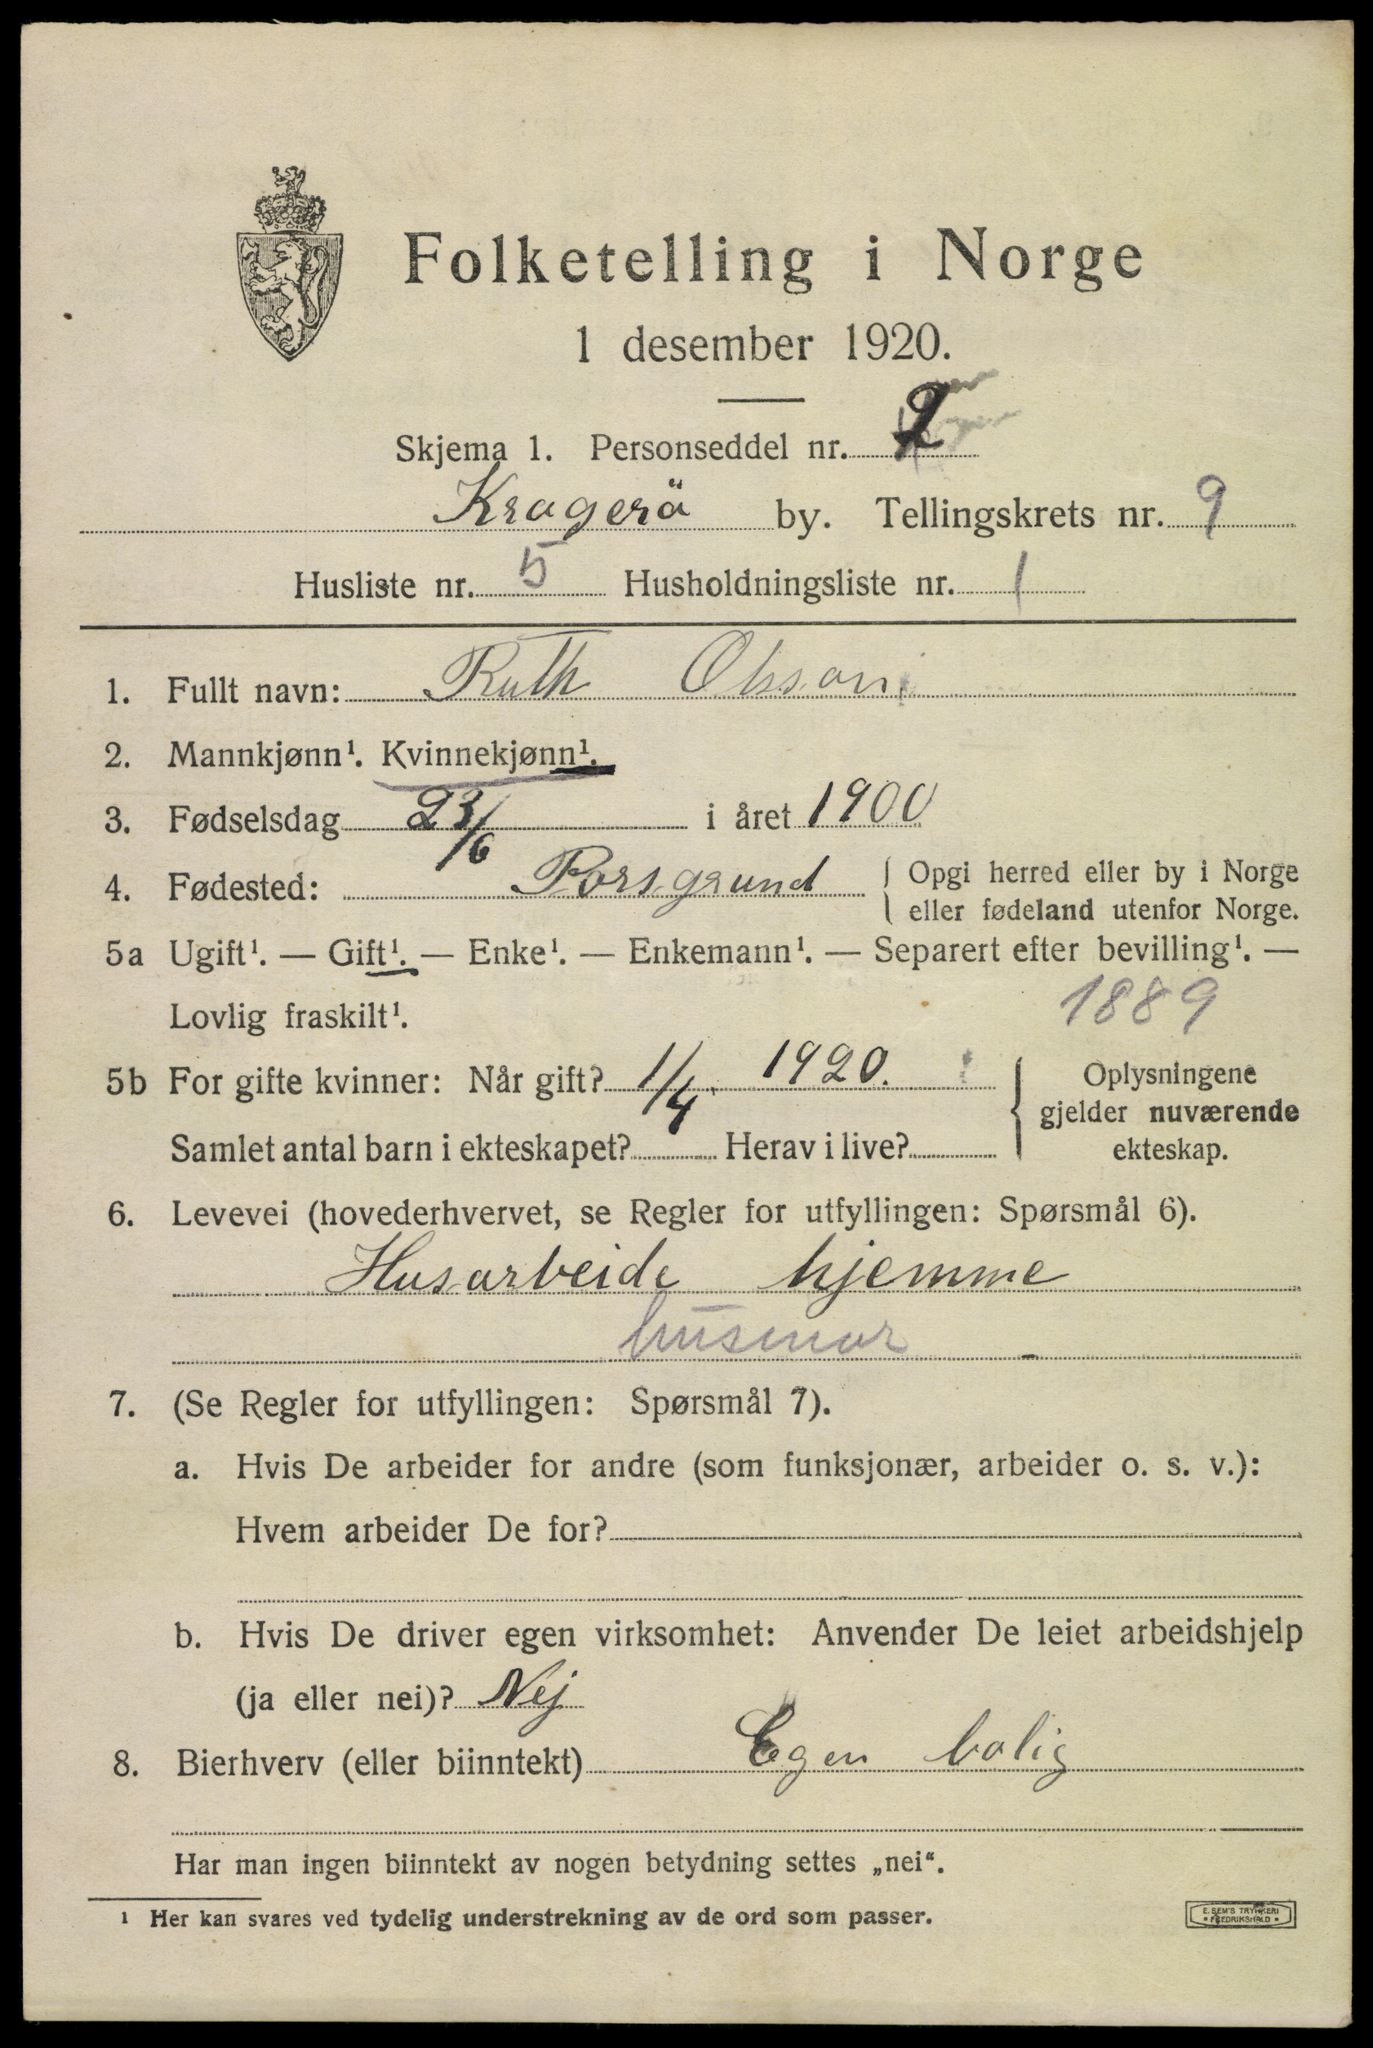 Folketelling i Norge
1 desember 1920.
Skjema 1. Personseddel nr. 2
Kragerö by. Tellingskrets nr. 9
Husliste nr. 5 Husholdningsliste nr. 1
1. Fullt navn: Ruth Olsson
2. Mannkjønn¹. Kvinnekjønn¹.
3. Fødselsdag 23/6 i året 1900
4. Fødested: Porsgrund { Opgi herred eller by i Norge
eller fødeland utenfor Norge.
5a Ugift¹. — Gift¹. — Enke¹. — Enkemann¹. — Separert efter bevilling¹. —
Lovlig fraskilt¹. 1889
5b For gifte kvinner: Når gift? 1/4 1920. { Oplysningene
gjelder nuværende
Samlet antal barn i ekteskapet? Herav i live? ekteskap.
6. Levevei (hovederhvervet, se Regler for utfyllingen: Spørsmål 6).
Husarbeide hjemme
husmor
7. (Se Regler for utfyllingen: Spørsmål 7).
a. Hvis De arbeider for andre (som funksjonær, arbeider o. s. v.):
Hvem arbeider De for?
b. Hvis De driver egen virksomhet: Anvender De leiet arbeidshjelp
(ja eller nei)? Nej
8. Bierhverv (eller biinntekt) Egen bolig
Har man ingen biinntekt av nogen betydning settes „nei“.
¹ Her kan svares ved tydelig understrekning av de ord som passer.
E. SEM'S TRYKKERI
* FREDRIKSHALD *